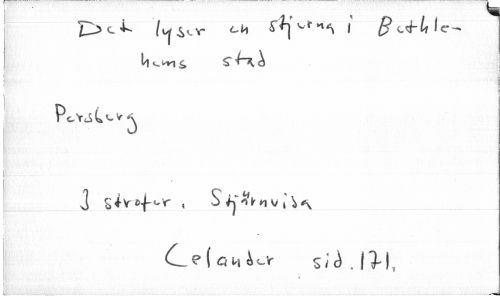 Det lyser en stjerna i Bethle-
hems stad
Persberg
3 strofer. Stjärnvisa
Celander sid. 171.